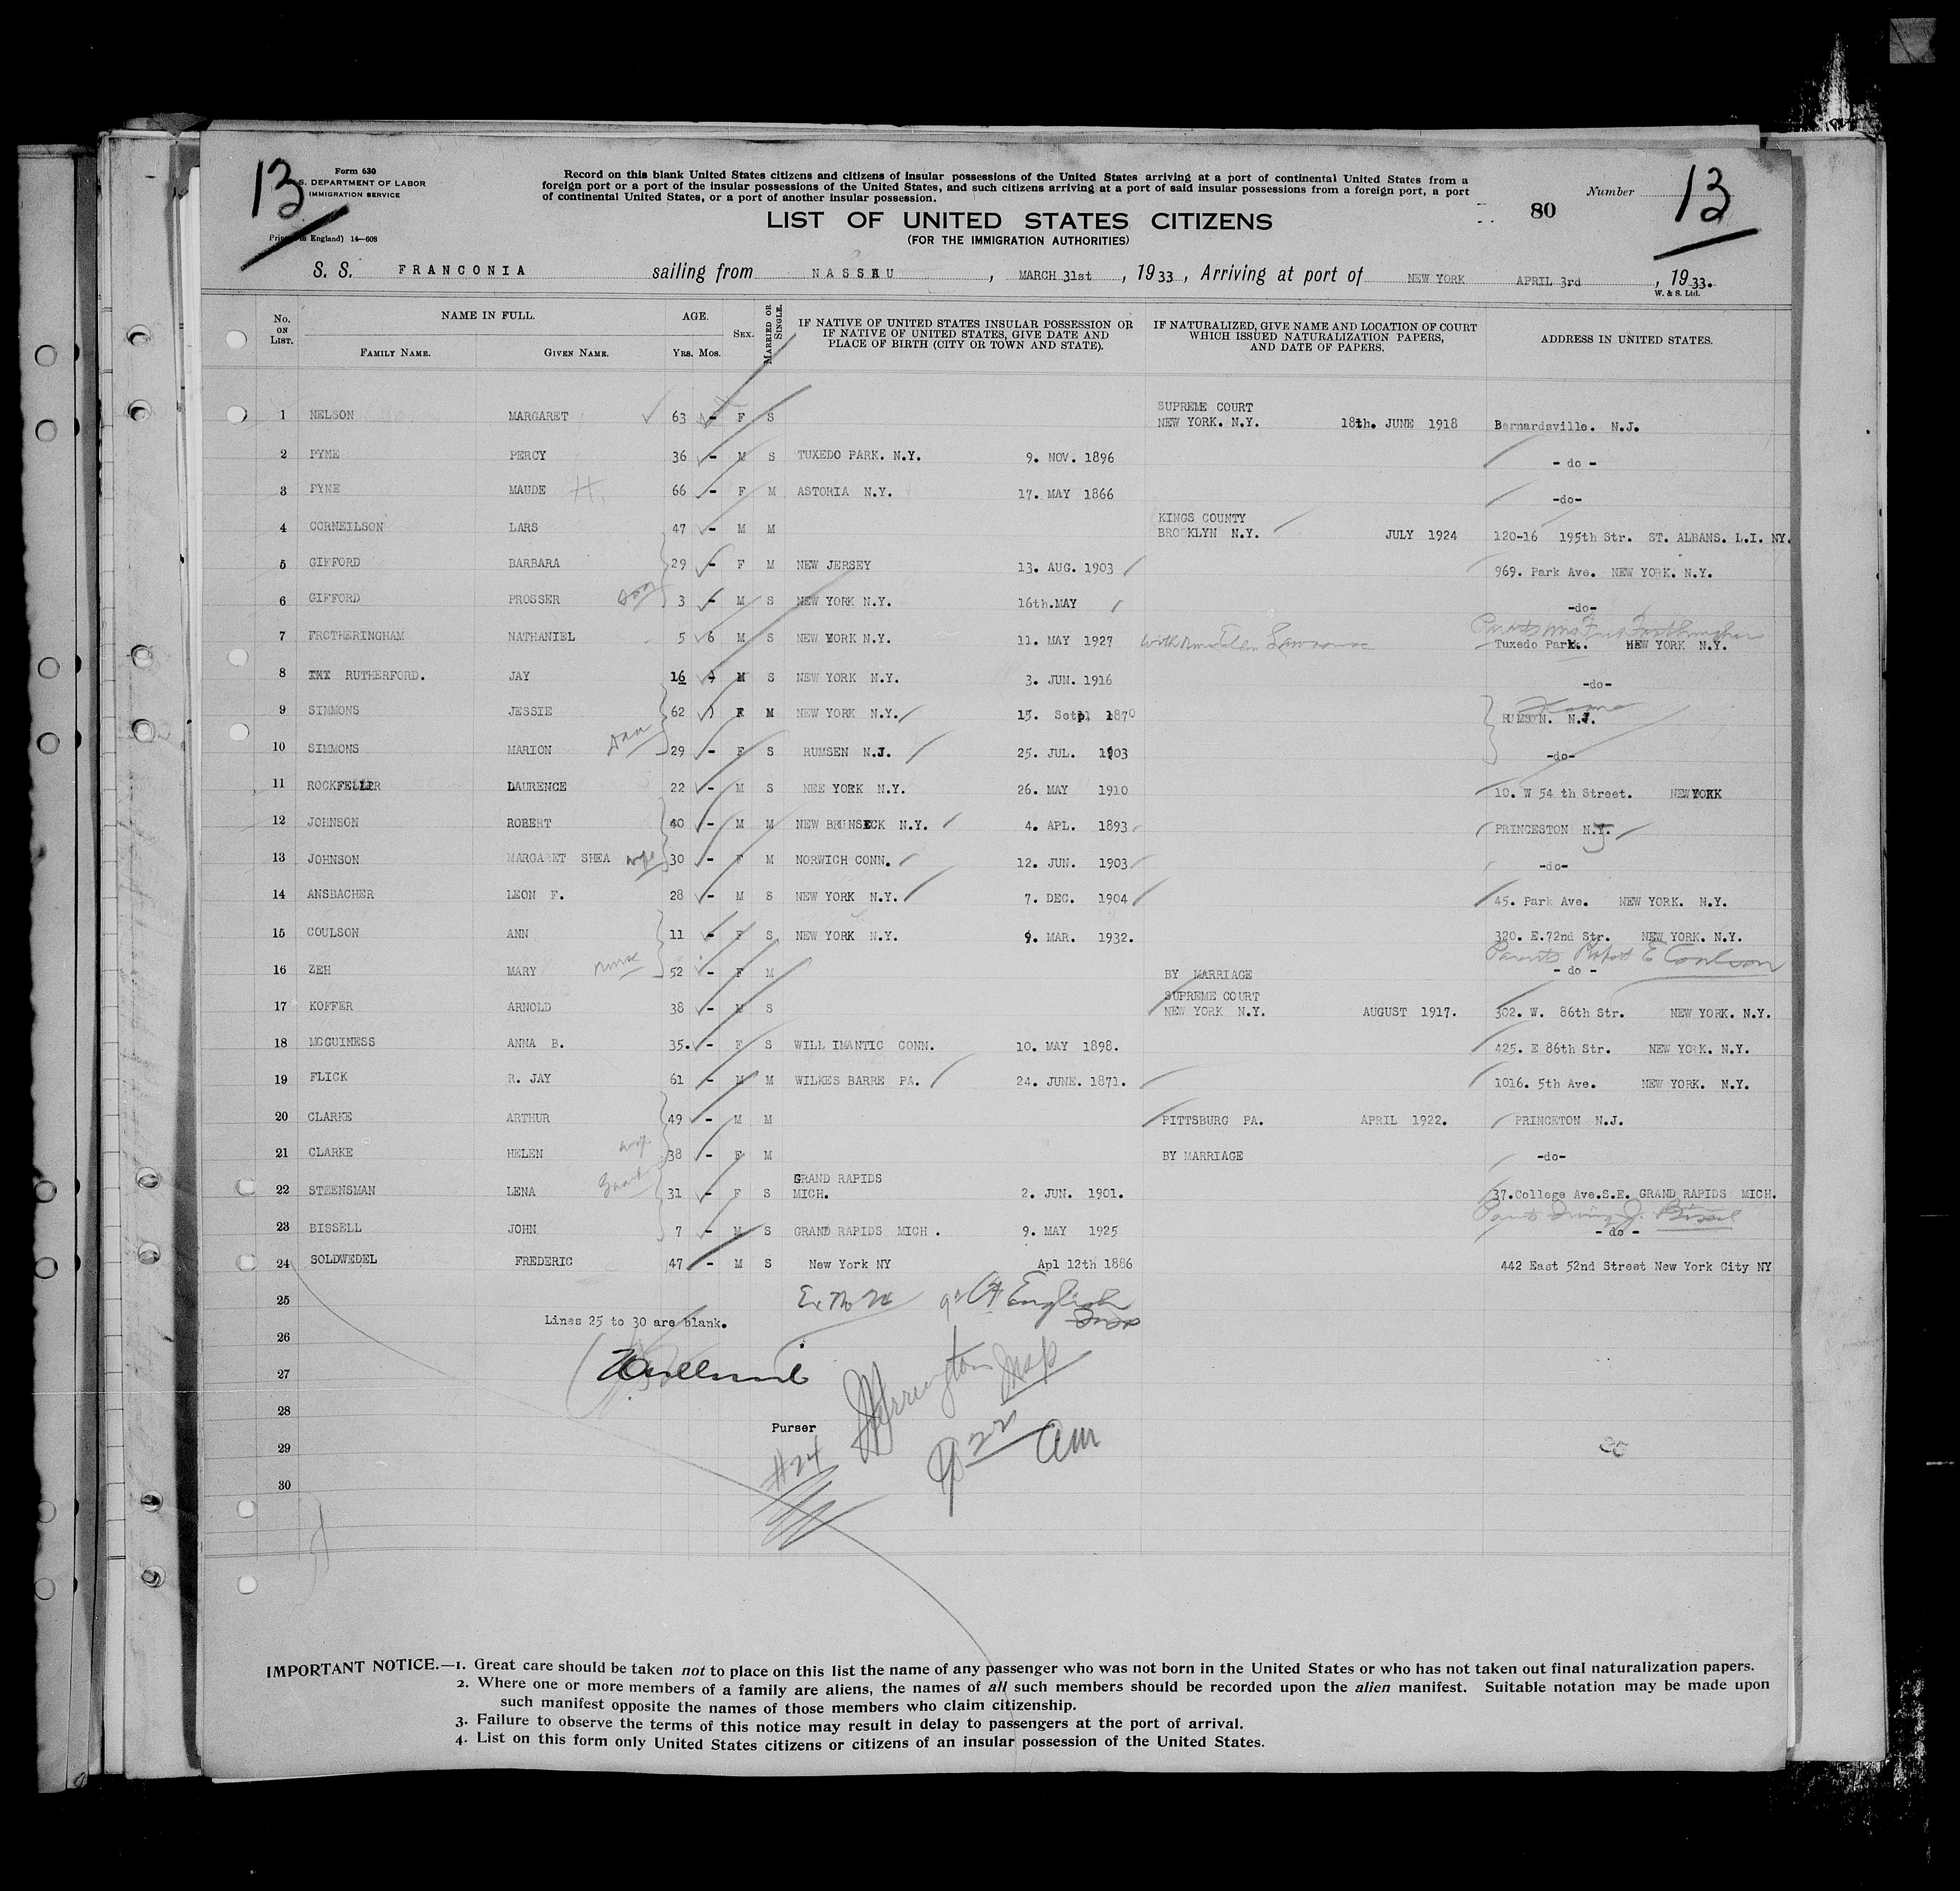 13
Form 630
S. DEPARTMENT OF LABOR
IMMIGRATION SERVICE
in England) 14—608
Record on this blank United States citizens and citizens of insular possessions of the United States arriving at a port of continental United States from a
foreign port or a port of the insular possessions of the United States, and such citizens arriving at a port of said insular possessions from a foreign port, a port
of continental United States, or a port of another insular possession.
LIST OF UNITED STATES CITIZENS
(FOR THE IMMIGRATION AUTHORITIES)
80
Number 13
S. S. FRANCONIA sailing from NASSAU, MARCH 31st, 1933, Arriving at port of NEW YORK APRIL 3rd, 1933.
W. & S. Ltd.
No. ON LIST. NAME IN FULL. FAMILY NAME. GIVEN NAME. AGE. Yrs. Mos. SEX. MARRIED OR SINGLE. IF NATIVE OF UNITED STATES INSULAR POSSESSION OR IF NATIVE OF UNITED STATES, GIVE DATE AND PLACE OF BIRTH (CITY OR TOWN AND STATE). IF NATURALIZED, GIVE NAME AND LOCATION OF COURT WHICH ISSUED NATURALIZATION PAPERS, AND DATE OF PAPERS. ADDRESS IN UNITED STATES.
1 NELSON MARGARET 63 - F S SUPREME COURT NEW YORK. N.Y. 18th. JUNE 1918 Bernardsville. N.J.
2 PYNE PERCY 36 - M S TUXEDO PARK. N.Y. 9. NOV. 1896 - do -
3 PYNE MAUDE H. 66 - F M ASTORIA N.Y. 17. MAY 1866 -do-
4 CORNEILSON LARS 47 - M M KINGS COUNTY BROOKLYN N.Y. JULY 1924 120-16 195th Str. ST. ALBANS. L.I. NY.
5 GIFFORD BARBARA 29 - F M NEW JERSEY 13. AUG. 1903 969. Park Ave. NEW YORK. N.Y.
6 GIFFORD PROSSER son 3 - M S NEW YORK N.Y. 16th.MAY -do-
7 FROTHERINGHAM NATHANIEL 5 6 M S NEW YORK N.Y. 11. MAY 1927 Tuxedo Park. NEW YORK N.Y.
8 RUTHERFORD. JAY 16 M S NEW YORK N.Y. 3. JUN. 1916 -do-
9 SIMMONS JESSIE 62 F M NEW YORK N.Y. 15. Sept 1870 RUMSEN. N.J.
10 SIMMONS MARION dau 29 - F S RUMSEN N.J. 25. JUL. 1903 -do-
11 ROCKFELLER LAURENCE 22 - M S NEE YORK N.Y. 26. MAY 1910 10. W 54 th Street. NEWYORK
12 JOHNSON ROBERT 40 - M M NEW BRUNSECK N.Y. 4. APL. 1893 PRINCESTON N.J.
13 JOHNSON MARGARET SHEA wife 30 - F M NORWICH CONN. 12. JUN. 1903 -do-
14 ANSBACHER LEON F. 28 - M S NEW YORK N.Y. 7. DEC. 1904 45. Park Ave. NEW YORK. N.Y.
15 COULSON ANN 11 - F S NEW YORK N.Y. 9. MAR. 1932. 320. E.72nd Str. NEW YORK. N.Y.
16 ZEH MARY nurse 52 - F M BY MARRIAGE Parents Robert E Coulson - do -
17 KOFFER ARNOLD 38 - M S SUPREME COURT NEW YORK N.Y. AUGUST 1917. 302. W. 86th Str. NEW YORK. N.Y.
18 MCGUINESS ANNA B. 35. - F S WILL IMANTIC CONN. 10. MAY 1898. 425. E 86th Str. NEW YORK. N.Y.
19 FLICK R. JAY 61 - M M WILKES BARRE PA. 24. JUNE. 1871. 1016. 5th Ave. NEW YORK. N.Y.
20 CLARKE ARTHUR 49 - M M PITTSBURG PA. APRIL 1922. PRINCETON N.J.
21 CLARKE HELEN wife 38 - F M BY MARRIAGE -do-
22 STEENSMAN LENA 31 - F S GRAND RAPIDS MICH. 2. JUN. 1901. 37.College Ave.S.E. GRAND RAPIDS MICH.
23 BISSELL JOHN 7 - M S GRAND RAPIDS MICH. 9. MAY 1925 - do -
24 SOLDWEDEL FREDERIC 47 - M S New York NY Apl 12th 1886 442 East 52nd Street New York City NY
25
Lines 25 to 30 are blank.
26
27
28
Purser
29
#24
922 am
30
IMPORTANT NOTICE.—1. Great care should be taken not to place on this list the name of any passenger who was not born in the United States or who has not taken out final naturalization papers.
2. Where one or more members of a family are aliens, the names of all such members should be recorded upon the alien manifest. Suitable notation may be made upon
such manifest opposite the names of those members who claim citizenship.
3. Failure to observe the terms of this notice may result in delay to passengers at the port of arrival.
4. List on this form only United States citizens or citizens of an insular possession of the United States.